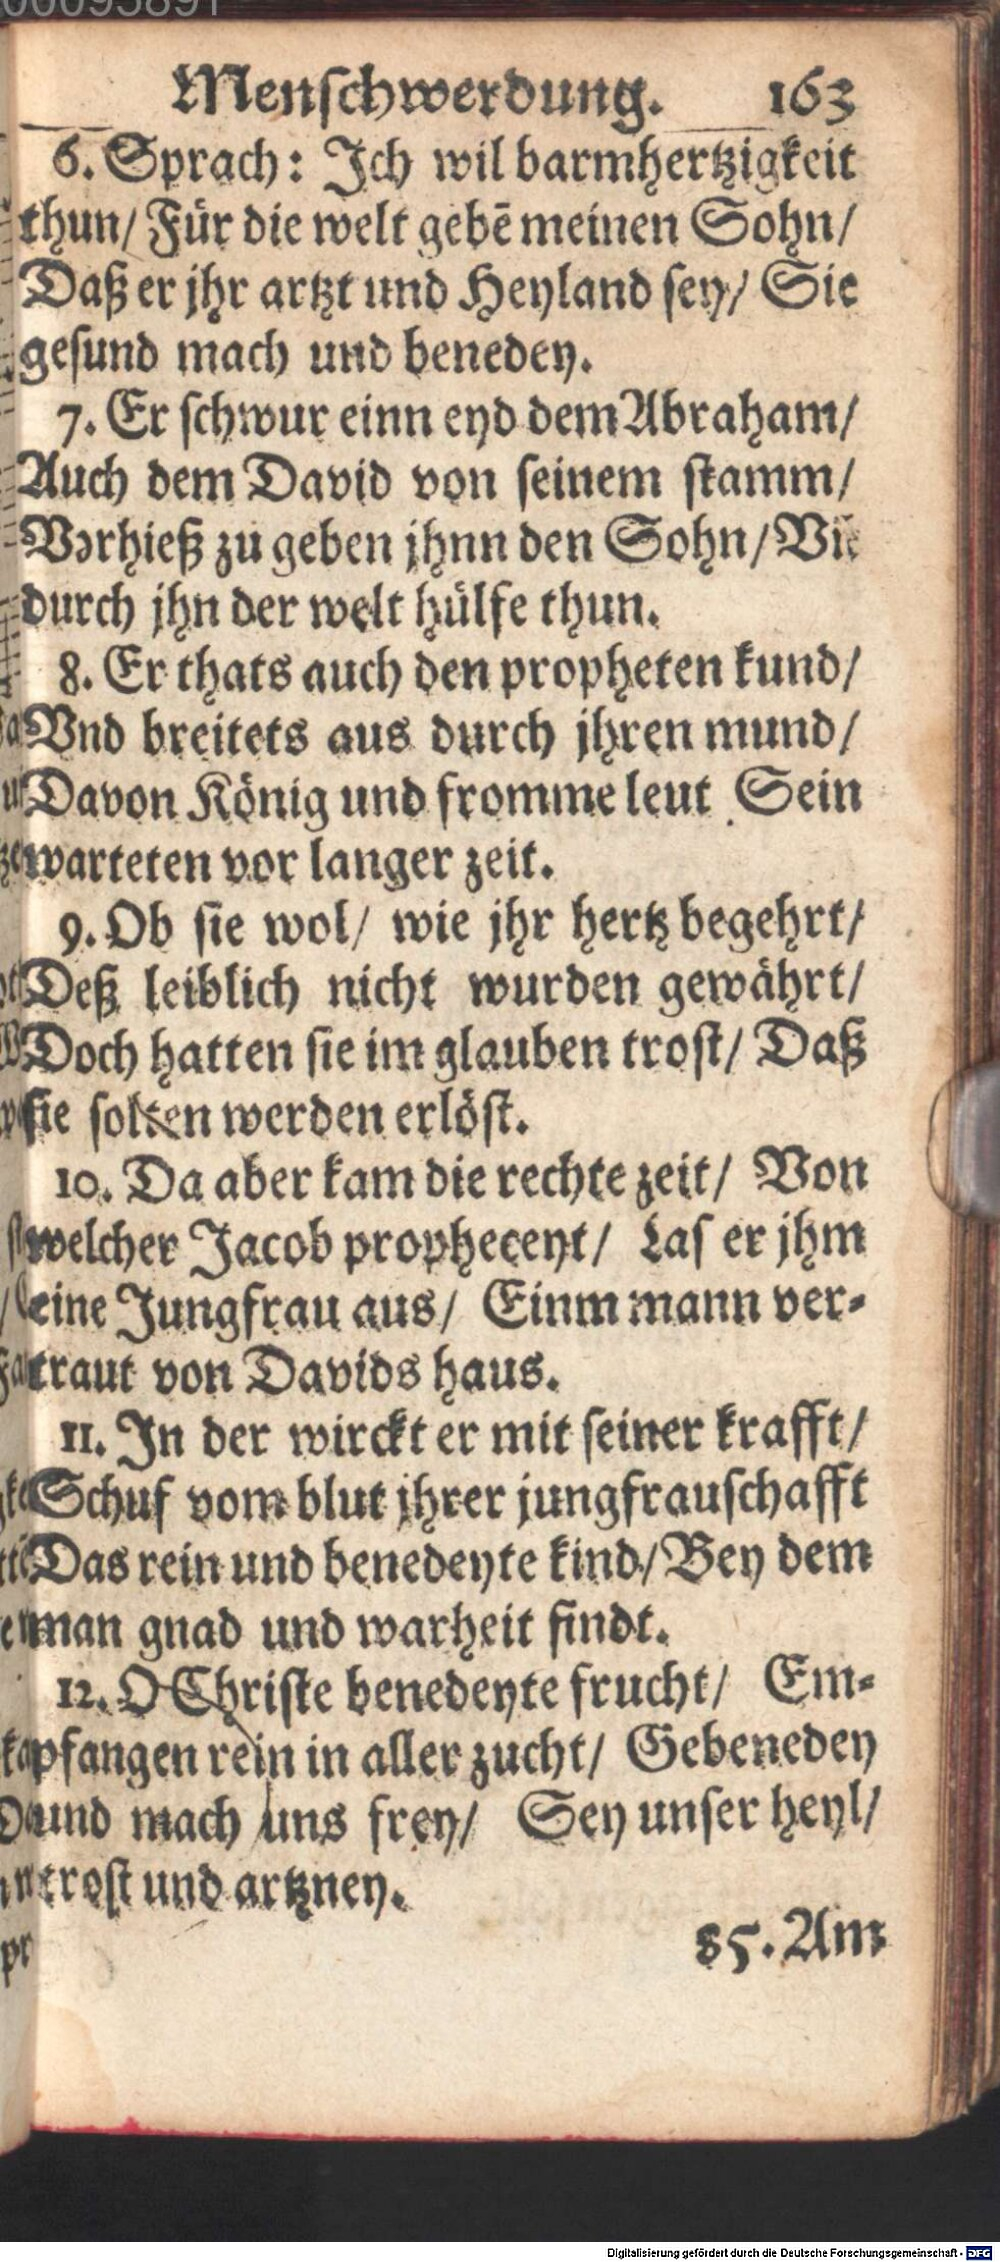 00095891
Menschwerdung. 163
6. Sprach: Ich wil barmhertzigkeit
thun/ Für die welt gebē meinen Sohn/
Daß er jhr artzt und Heyland sey/ Sie
gesund mach und benedey.
7. Er schwur einn eyd dem Abraham/
Auch dem David von seinem stamm/
Verhieß zu geben jhnn den Sohn/ Vñ
durch jhn der welt hülfe thun.
8. Er thats auch den propheten kund/
Vnd breitets aus durch jhren mund/
Davon König und fromme leut Sein
warteten vor langer zeit.
9. Ob sie wol/ wie jhr hertz begehrt/
Deß leiblich nicht wurden gewährt/
Doch hatten sie im glauben trost/ Daß
sie solten werden erlöst.
10. Da aber kam die rechte zeit/ Von
welcher Jacob propheceyt/ Las er jhm
eine Jungfrau aus/ Einm mann ver-
traut von Davids haus.
11. In der wirckt er mit seiner krafft/
Schuf vom blut jhrer jungfrauschafft
Das rein und benedeyte kind/ Bey dem
man gnad und warheit findt.
12. O Christe benedeyte frucht/ Em-
pfangen rein in aller zucht/ Gebenedey
und mach uns frey/ Sey unser heyl/
trost und artzney.
85. Am
Digitalisierung gefördert durch die Deutsche Forschungsgemeinschaft - DFG